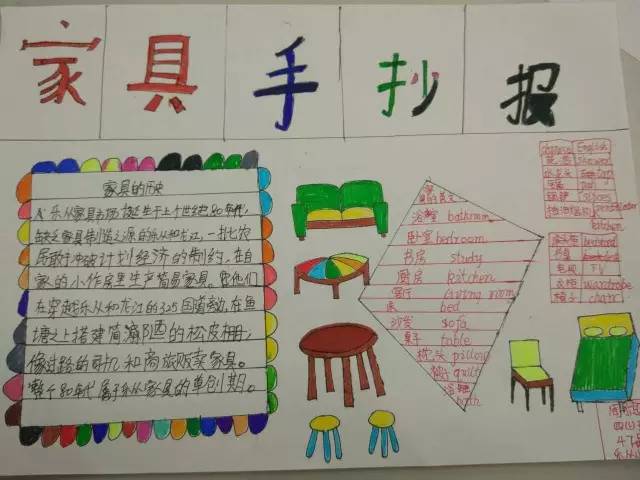 家具手抄报
家具的历史
乐从家具市场诞生于上个世纪80年代,
缺乏家具制造之源的乐从和龙江,一批农
民敢于冲破计划经济的制约,在自
家的小作房里生产简易家具,
在穿越乐从和龙江的325国道旁,在鱼
塘之上搭建简陋的松皮棚,
像过路的司机和商旅贩卖家具。
整个80年代属于乐从家具的草创期。
浴室 bathroom
卧室 bedroom
书房 study
厨房 kitchen
客厅 living room
床 bed
沙发 sofa
桌子 table
枕头 pillow
被子 quilt
浴缸
bath
English
shower
pan
kitchen
书桌
电视 TV
衣柜 wardrobe
椅子 chair